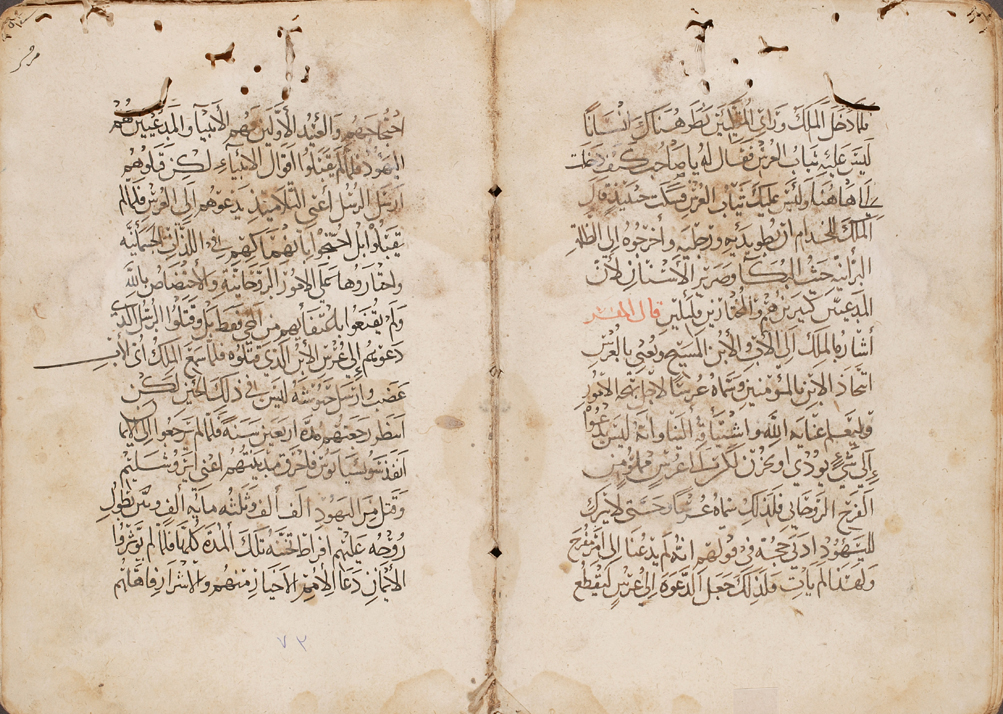 فلما دخل الملك ورأى المتكئين نظر هناك انسانًا
ليس عليه ثياب العرس فقال له يا صاحب كيف دخلت
الى هاهنا وليس عليك ثياب العرس فسكت حينيذ قال
الملك للخدام ان يطو يديه ورجليه واخرجوه الى الظلمه
البرانيه حيث البكا وصرير الاسنان لأن
المدعيين كثيرين هم والمختارين قليلين قال المفسر
أشار بالملك الى الآب وبالابن المسيح ويعني بالعرس
اتحاد الابن بالمؤمنين وسماه عرسًا لاجل بهجه الامور
وليعلم عناية الله واشتياقه الينا وانه ليس يدعوا
إلى شيء يوذي او يحزن لكن الى عرس مملو من
الفرح الروحاني فلذلك سماه عرسًا وحتى لا يترك
لليهود ادنى حجة في قولهم انه لم يدعنا الى امر مفرح
ولهذا لم يات فلذلك جعل الدعوة الى عرس ليقطع
احتجاجهم والعبيد الأولين فهم الأنبيا والمدعيين هم
اليهود فلما لم يقبلوا اقوال الانبياء لكن قتلوهم
ارسل الرسل أعني التلاميذ يدعوهم الى العرس فلما لم
يقبلوا بل احتجوا بانهماكهم في اللذات الجسمانيه
واختاروها على الامور الروحانية والاختصاص بالله
ولم يقنعوا باعتفائهم من المجي فقط بل وقتلوا الرسل الذي
دعوتهم إلى عرس الابن الذي قتلوه فلما سمع الملك اي الآب
غضب وارسل جيوشه ليس في ذلك الحين لكن
انتظر رجعتهم مدة اربعين سنة فلما لم يرجعوا اليه
انفذ جيوشًا فاحرق مدينتهم اعني ايروشليم
وقتل من اليهود الف ألف وثلثه مايه ألف وبين بطول
روحه عليهم افراط تحننه تلك المدة كلها فلما لم يوثروا
الايمان دعا الامم الاخيار منهم والاشرار فاهلهم
٧٣